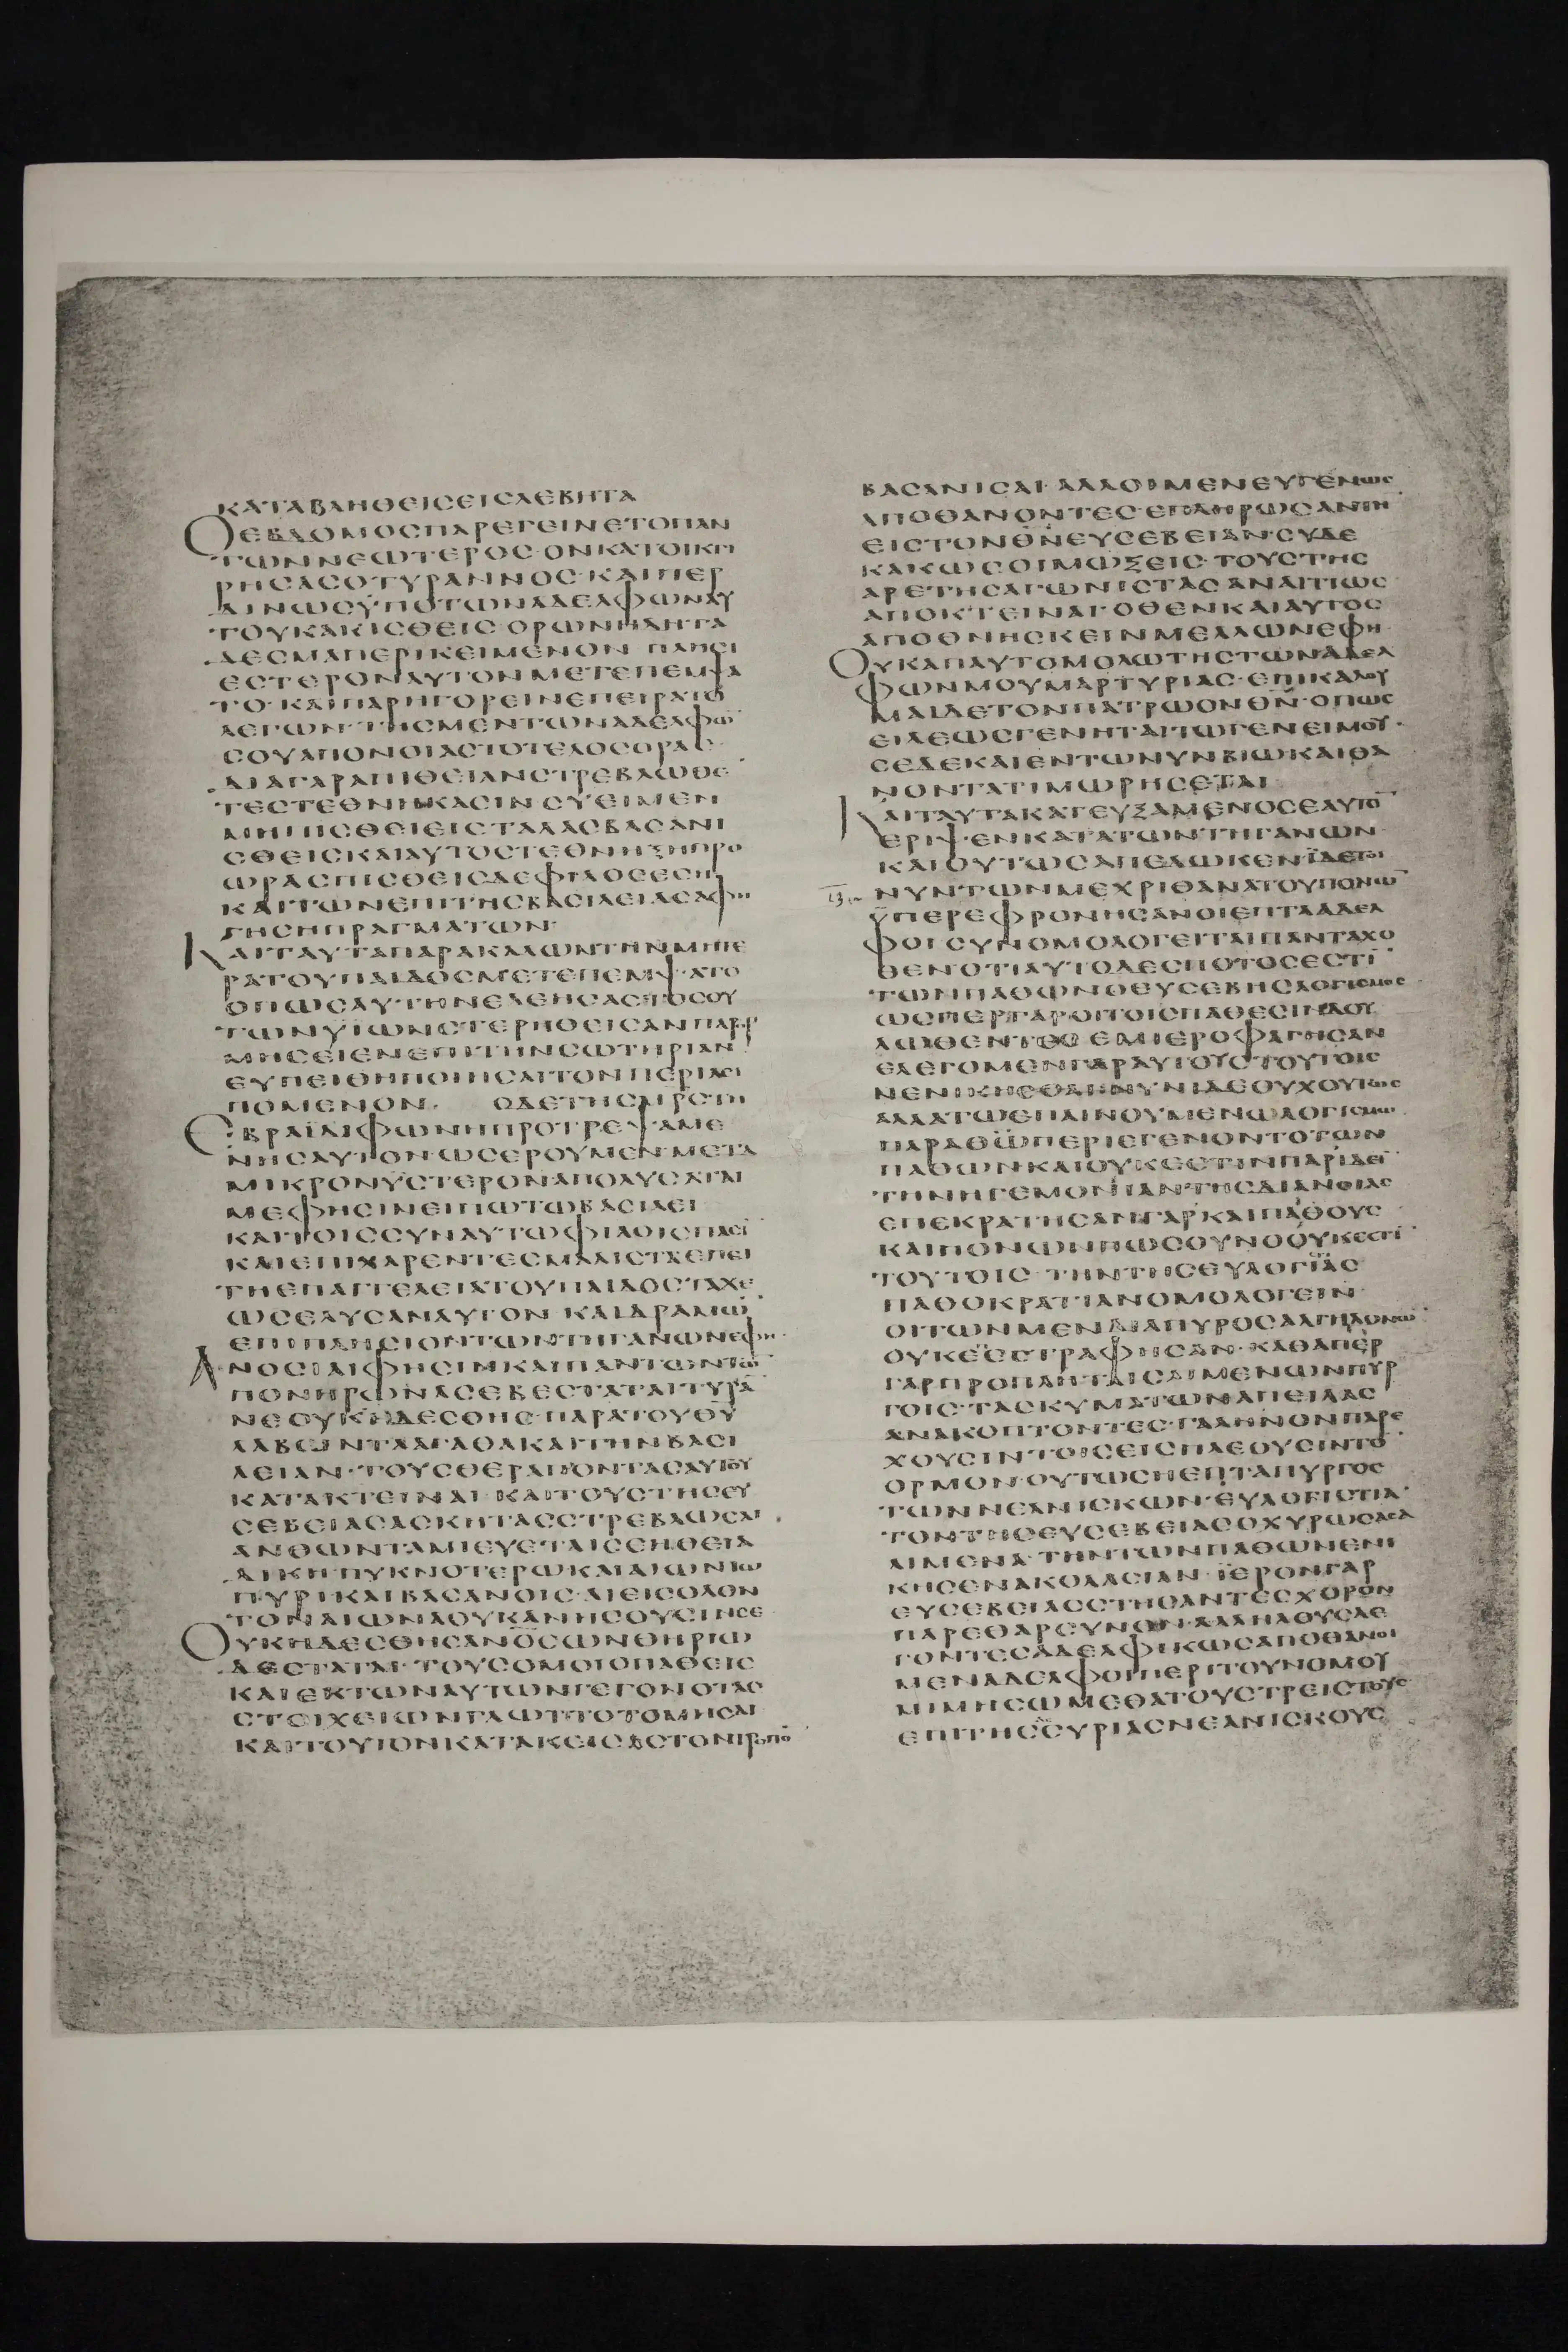 ΚΑΤΑΒΛΗΘΕΙΣΕΙΣΛΕΒΗΤΑ
ΟΕΒΔΟΜΟΣΠΑΡΕΓΕΙΝΕΤΟΠΑΝ
ΤΩΝΝΕΩΤΕΡΟΣ·ΟΝΚΑΤΟΙΚΤΙ
ΡΗΣΑΣΟΤΥΡΑΝΝΟΣ·ΚΑΙΠΕΡ
ΔΙΝΩΣΫΠΟΤΩΝΑΔΕΛΦΩΝΑΥ
ΤΟΥΚΑΚΙΣΘΕΙΣ ΟΡΩΝΗΔΗΤΑ
ΔΕΣΜΑΠΕΡΙΚΕΙΜΕΝΟΝ ΠΛΗΣΙ
ΕΣΤΕΡΟΝΑΥΤΟΝΜΕΤΕΠΕΜΨΑ
ΤΟ·ΚΑΙΠΑΡΗΓΟΡΕΙΝΕΠΕΙΡΑΤΟ
ΛΕΓΩΝ·ΤΗΣΜΕΝΤΩΝΑΔΕΛΦΩ̄
ΣΟΥΑΠΟΝΟΙΑΣΤΟΤΕΛΟΣΟΡΑΣ·
ΔΙΑΓΑΡΑΠΙΘΕΙΑΝΣΤΡΕΒΛΩΘΕ
ΤΕΣΤΕΘΝΗΚΑΣΙΝ ΣΥΕΙΜΕΝ
ΜΗΠΙΣΘΕΙΕΙΣΤΑΛΑΣΒΑΣΑΝΙ
ΣΘΕΙΣΚΑΙΑΥΤΟΣΤΕΘΝΗΞΗΠΡΟ
ΩΡΑΣΠΙΣΘΕΙΣΔΕΦΙΛΟΣΕΣΗ
ΚΑΙΤΩΝΕΠΙΤΗΣΒΑΣΙΛΕΙΑΣΑΦΗ
ΓΗΣΗΠΡΑΓΜΑΤΩΝ·
ΚΑΙΤΑΥΤΑΠΑΡΑΚΑΛΩΝΤΗΝΜΗΤΕ
ΡΑΤΟΥΠΑΙΔΟΣΜΕΤΕΠΕΜΨΑΤΟ
ΟΠΩΣΑΥΤΗΝΕΛΕΗΣΑΣΤΟΣΟΥ
ΤΩΝΥΙΩΝΣΤΕΡΗΘΕΙΣΑΝΠΑΡΟΡ
ΜΗΣΕΙΕΝΕΠΙΤΗΝΣΩΤΗΡΙΑΝ
ΕΥΠΕΙΘΗΠΟΙΗΣΑΙΤΟΝΠΕΡΙΛΕΙ
ΠΟΜΕΝΟΝ· ΟΔΕΤΗΣΜΡΣΤΗ
ΕΒΡΑΪΔΙΦΩΝΗΠΡΟΤΡΕΨΑΜΕ
ΝΗΣΑΥΤΟΝ·ΩΣΕΡΟΥΜΕΝ·ΜΕΤΑ
ΜΙΚΡΟΝΫΣΤΕΡΟΝ·ΑΠΟΛΥΣΑΤΑΙ
ΜΕΦΗΣΙΝΕΙΠΩΤΩΒΑΣΙΛΕΙ
ΚΑΙΤΟΙΣΣΥΝΑΥΤΩΦΙΛΟΙΣΠΑΣΙ
ΚΑΙΕΠΙΧΑΡΕΝΤΕΣΜΑΛΙΣΤΑΕΠΕΙ
ΤΗΕΠΑΓΓΕΛΕΙΑΤΟΥΠΑΙΔΟΣΤΑΧΕ
ΩΣΕΛΥΣΑΝΑΥΤΟΝ ΚΑΙΔΡΑΜΩ̄
ΕΠΙΠΛΗΣΙΟΝΤΩΝΤΗΓΑΝΩΝΕΦΗ·
ΑΝΟΣΙΑΙΦΗΣΙΝΚΑΙΠΑΝΤΩΝΤΩ̄
ΠΟΝΗΡΩΝΑΣΕΒΕΣΤΑΤΑΙΤΥΡᾹ
ΝΕΟΥΚΗΔΕΣΘΗΣ·ΠΑΡΑΤΟΥΘ̄Ῡ
ΛΑΒΩΝΤΑΑΓΑΘΑΚΑΙΤΗΝΒΑΣΙ
ΛΕΙΑΝ·ΤΟΥΣΘΕΡΑΠΟΝΤΑΣΑΥΤΟΥ
ΚΑΤΑΚΤΕΙΝΑΙ·ΚΑΙΤΟΥΣΤΗΣΕΥ
ΣΕΒΕΙΑΣΑΣΚΗΤΑΣΣΤΡΕΒΛΩΣΑΙ·
ΑΝΘΩΝΤΑΜΙΕΥΣΕΤΑΙΣΕΗΘΕΙΑ
ΔΙΚΗ·ΠΥΚΝΟΤΕΡΩΚΑΙΑΙΩΝΙΩ
ΠΥΡΙ·ΚΑΙΒΑΣΑΝΟΙΣ·ΑΙΕΙΣΟΛΟΝ
ΤΟΝΑΙΩΝΑΟΥΚΑΝΗΣΟΥΣΙΝΣΕ
ΟΥΚΗΔΕΣΘΗΣΑΝΟ̄ΣΩΝΘΗΡΙΩ
ΔΕΣΤΑΤΑΙ·ΤΟΥΣΟΜΟΙΟΠΑΘΕΙΣ
ΚΑΙΕΚΤΩΝΑΥΤΩΝΓΕΓΟΝΟΤΑΣ
ΣΤΟΙΧΕΙΩΝΓΛΩΤΤΟΤΟΜΗΣΑΙ
ΚΑΙΤΟΥΤΟΝΚΑΤΑΚΕΙΣΑΣΤΟΝΤΡΟΠΟ̄
ΒΑΣΑΝΙΣΑΙ· ΑΛΛΟΙΜΕΝΕΥΓΕΝΩΣ
ΑΠΟΘΑΝΟΝΤΕΣ·ΕΠΛΗΡΩΣΑΝΤΗ̄
ΕΙΣΤΟΝΘ̄Ν̄ΕΥΣΕΒΕΙΑΝ·ΣΥΔΕ
ΚΑΚΩΣΟΙΜΩΞΕΙΣ·ΤΟΥΣΤΗΣ
ΑΡΕΤΗΣΑΓΩΝΙΣΤΑΣ ΑΝΑΙΤΙΩΣ
ΑΠΟΚΤΕΙΝΑΣ·ΟΘΕΝΚΑΙΑΥΤΟΣ
ΑΠΟΘΝΗΣΚΕΙΝΜΕΛΛΩΝΕΦΗ·
ΟΥΚΑΠΑΥΤΟΜΟΛΩΤΗΣΤΩΝΑΔΕΛ
ΦΩΝΜΟΥΜΑΡΤΥΡΙΑΣ·ΕΠΙΚΑΛΟΥ
ΜΑΙΔΕΤΟΝΠΑΤΡΩΟΝΘ̄Ν̄·ΟΠΩΣ
ΕΙΛΕΩΣΓΕΝΗΤΑΙΤΩΓΕΝΕΙΜΟΥ·
ΣΕΔΕΚΑΙΕΝΤΩΝΥΝΒΙΩΚΑΙΘΑ
ΝΟΝΤΑΤΙΜΩΡΗΣΕΤΑΙ
ΚΑΙΤΑΥΤΑΚΑΤΕΥΞΑΜΕΝΟΣΕΑΥΤΟ̄
ΕΡΙΨΕΝΚΑΤΑΤΩΝΤΗΓΑΝΩΝ·
ΚΑΙΟΥΤΩΣΑΠΕΔΩΚΕΝ·ΪΔΕΤΟΙ
ΝΥΝΤΩΝΜΕΧΡΙΘΑΝΑΤΟΥΠΟΝΩ̄
ΫΠΕΡΕΦΡΟΝΗΣΑΝΟΙΕΠΤΑΑΔΕΛ
ΦΟΙΣΥΝΟΜΟΛΟΓΕΙΤΑΙΠΑΝΤΑΧΟ
ΘΕΝΟΤΙΑΥΤΟΔΕΣΠΟΤΟΣΕΣΤΙ
ΤΩΝΠΑΘΩΝΘΕΥΣΕΒΗΣΛΟΓΙΣΜΟΣ
ΩΣΠΕΡΓΑΡΟΙΤΟΙΣΠΑΘΕΣΙΝΔΟΥ
ΛΩΘΕΝΤΕΣ ΕΜΙΕΡΟΦΑΓΗΣΑΝ
ΕΛΕΓΟΜΕΝΓΑΡΑΥΤΟΥΣΤΟΥΤΟΙΣ
ΝΕΝΙΚΗΣΘΑΙΝΥΝΙΔΕΟΥΧΟΥΤΩΣ
ΑΛΛΑΤΩΕΠΑΙΝΟΥΜΕΝΩΛΟΓΙΣΜΩ
ΠΑΡΑΘ̄Ω̄ΠΕΡΙΕΓΕΝΟΝΤΟΤΩΝ
ΠΑΘΩΝΚΑΙΟΥΚΕΣΤΙΝΠΑΡΙΔΕΙ
ΤΗΝΗΓΕΜΟΝΙΑΝΤΗΣΔΙΑΝΟΙΑΣ
ΕΠΕΚΡΑΤΗΣΑΝΓΑΡΚΑΙΠΑΘΟΥΣ
ΚΑΙΠΟΝΩΝΠΩΣΟΥΝΟΟΥΚΕΣΤΙ
ΤΟΥΤΟΙΣ·ΤΗΝΤΗΣΕΥΛΟΓΙΑΣ
ΠΑΘΟΚΡΑΤΙΑΝΟΜΟΛΟΓΕΙΝ·
ΟΙΤΩΝΜΕΝΔΙΑΠΥΡΟΣΑΛΓΗΔΟΝΩ̄·
ΟΥΚΕΣΣΤΡΑΦΗΣΑΝ·ΚΑΘΑΠΕΡ
ΓΑΡΠΡΟΠΛΗΤΑΙΣΛΙΜΕΝΩΝΠΥΡ
ΓΟΙΣ·ΤΑΣΚΥΜΑΤΩΝΑΠΕΙΛΑΣ
ΑΝΑΚΟΠΤΟΝΤΕΣ·ΓΑΛΗΝΟΝΠΑΡΕ
ΧΟΥΣΙΝΤΟΙΣΕΙΣΠΛΕΟΥΣΙΝΤΟ̄
ΟΡΜΟΝ·ΟΥΤΩΣΗΕΠΤΑΠΥΡΓΟΣ
ΤΩΝΝΕΑΝΙΣΚΩΝ·ΕΥΛΟΓΙΣΤΙΑ·
ΤΟΝΤΗΣΕΥΣΕΒΕΙΑΣΟΧΥΡΩΣΑΣΑ
ΛΙΜΕΝΑ·ΤΗΝΤΩΝΠΑΘΩΝΕΝΙ
ΚΗΣΕΝΑΚΟΛΑΣΙΑΝ·ΪΕΡΟΝΓΑΡ
ΕΥΣΕΒΕΙΑΣΣΤΗΣΑΝΤΕΣΧΟΡΟΝ
ΠΑΡΕΘΑΡΣΥΝΟΝ·ΑΛΛΗΛΟΥΣΛΕ
ΓΟΝΤΕΣΑΔΕΛΦΙΚΩΣΑΠΟΘΑΝΟΙ
ΜΕΝΑΔΕΛΦΟΙΠΕΡΙΤΟΥΝΟΜΟΥ
ΜΙΜΗΣΩΜΕΘΑΤΟΥΣΤΡΕΙΣΤΟΥΣ
ΕΠΙΤΗΣΣΥΡΙΑΣΝΕΑΝΙΣΚΟΥΣ